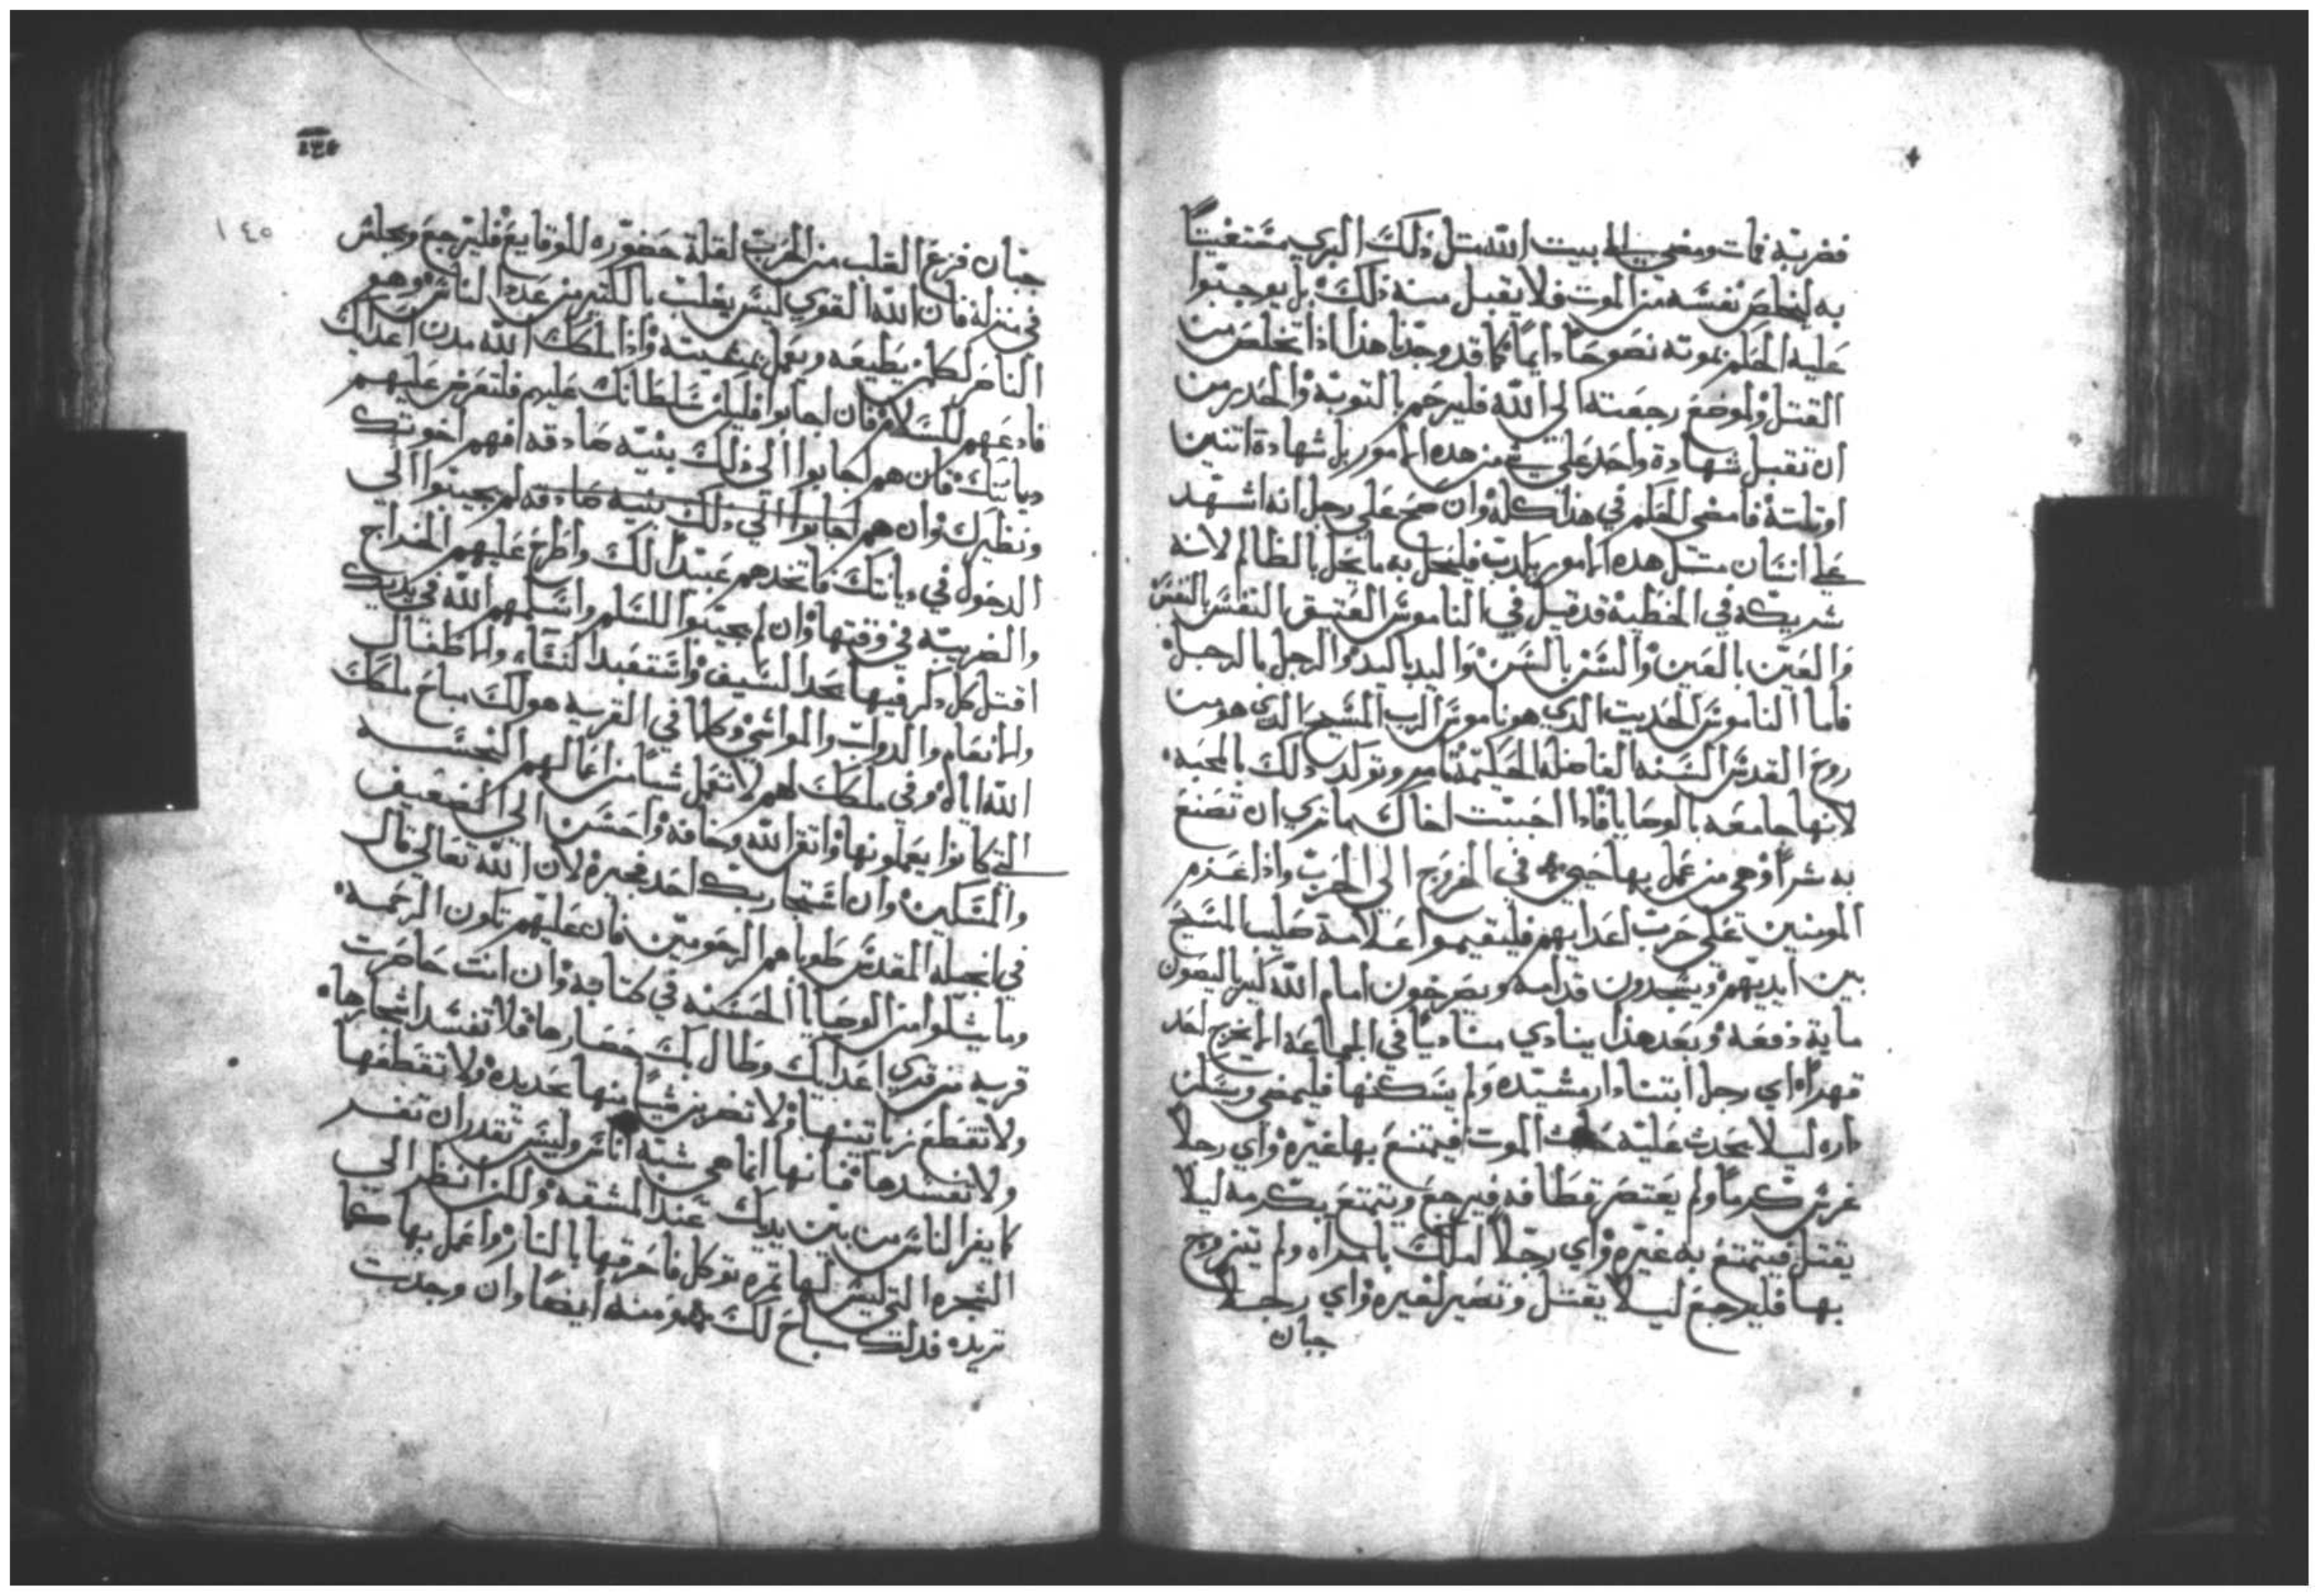 فضربه فمات ومضي الى بيت الله مثل ذلك البري مستغيثاً
به ليخلص نفسه من الموت فلا يقبل منه ذلك بل يوجبوا
عليه الحكم بموته نصوحاً دايماً كما قد وجدنا هذا اذا تخلص من
القتل ولموضع رجعته الى الله فليرحم بالتوبة والحدر من
ان تقبل شهادة واحد علي شي من هده الامور بل شهادة اتنين
او تلتة فامضي الحكم في هذا كله وان صح علي رجل انه اشهد
علي انسان مثل هده الامور بكدب فليحل به ما يحل بالظالم لانه
شريكه في الخطية قد قيل في الناموس العتيق النفس بالنفس
والعين بالعين والسن بالسن واليد باليد والرجل بالرجل
فاما الناموس الحديث الدي هو ناموس الرب المسيح الدي هو من
روح القدس السنه الفاضله الحكيمة تامر وتوكد دلك بالمحبه
لانها جامعه بالوصايا فادا احببت اخاك بما تري ان تصنع
به شراً وهي من عمل بها حيي في الخروج الي الحرب واذا عزم
المومنين علي حرب اعدايهم فليقيموا علامة صليب المسيح
بين ايديهم ويسجدون قدامه ويصرخون امام الله كيرياليصون
ماية دفعه وبعد هذا ينادي مناديا في الجماعة الا يخرج احد
قهراً اي رجل ابتنا دار مشيده ولم يسكنها فليمضي ويسكن
داره ليلا يحدث عليه حادث الموت فيتمتع بها غيره واي رجلاً
غرس كرماً ولم يعتصر قطافه فيرجع ويتمتع بكرمه ليلا
يقتل فيتمتع به غيره واي رجلاً املك بامراه ولم يتزوج
بها فليرجع ليلا يقتل وتصير لغيره واي رجلاً
جبان
١٤٥
جبان فزع القلب من الحرب لقلة حضوره للوقايع فليرجع ويجلس
في منزله فان الله القوي ليس يغلب بالكتير من عدد الناس وهو
الناصر لكل من يطيعه ويعمل بمشيته واذا ملكك الله مدن اعداك
فادعهم للسلام فان اجابوا فليكن سلطانك عليهم فلتعرض عليهم
ديانتك فان هم اجابوا الي ذلك بنية صادقه افهم اخوتك
ونظيرك وان هم اجابوا الي ذلك بنية صادقه لم يجيبوا الي
الدخول في ديانتك فاتخدهم عبيداً لك واطرح عليهم الخراج
والضريبة في وقتها وان لم يجيبوا للسلم واسلمهم الله في يديك
اقتل كل دكر فيها بحد السيف واستعبد النساء والاطفال
والانعام والدواب والمواشي وكلما في القريه هو لك مباح ملكك
الله اياه وفي ملكك لهم لا تعمل شيئاً من اعمالهم النجسه
التي كانوا يعملونها واتقي الله وخافه واحسن الي الضعيف
والمسكين وان استجار بك احد فجيره لان الله تعالي قال
في انجيله المقدس طوباهم الرحومين فان عليهم تكون الرحمه
وما يتلوا من الوصايا الحسنه في كتابه وان انت حاصرت
قريه من قري اعدايك وطال بك حصارها فلا تفسد اشجارها
ولا تقطع زياتينها ولا تضربن شيا منها بحديده ولا تقطعها
ولا تفسدها فانها انما هي شبه اناس وليس تقدر ان تفر
كما يفر الناس من بين يديك عند المشقه ولكن انظر الي
الشجره التي ليس لها تمره توكل فاحرقها بالنار واعمل بها كما
تريده فدلك مباح لك ومنه ايضاً وان وجدت